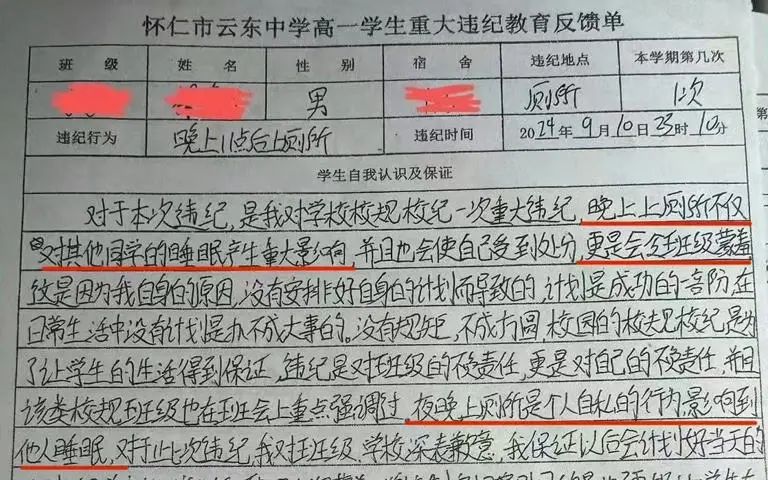 怀仁市云东中学高一学生重大违纪教育反馈单
班 级 姓 名 性 别 宿 舍 违纪地点 本学期第几次
男 厕所 1次
违纪行为 晚上11点后上厕所 违纪时间 2024年9月10日23时10分
学生自我认识及保证
对于本次违纪，是我对学校校规校纪一次重大违纪，晚上上厕所不仅
对其他同学的睡眠产生重大影响，并且也会使自己受到处分，更是会给班级蒙羞
这是因为我自身的原因，没有安排好自身的计划而导致的，计划是成功的一部阶，在
日常生活中没有计划是办不成大事的。没有规矩，不成方圆，校园的校规校纪是为
了让学生的生活得到保证，违纪是对班级的不负责任，更是对自己的不负责任，并且
该类校规班级也在班会上重点强调过，夜晚上厕所是个人自私的行为，影响到
他人睡眠，对于此次违纪，我对班级、学校深表歉意，我保证以后会计划好当天的
第